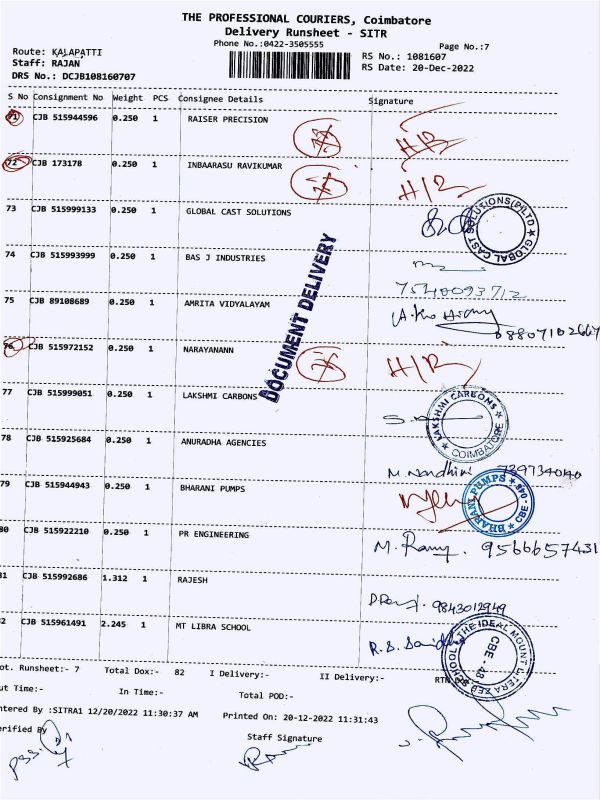 THE PROFESSIONAL COURIERS, Coimbatore
Delivery Runsheet - SITR
Phone No.:0422-3505555
Page No.:7
Route: KALAPATTI
RS No.: 1081607
Staff: RAJAN
RS Date: 20-Dec-2022
DRS No.: DCJB108160707
S No Consignment No Weight PCS Consignee Details Signature
71 CJB 515944596 0.250 1 RAISER PRECISION
72 CJB 173178 0.250 1 INBAARASU RAVIKUMAR H/R
73 CJB 515999133 0.250 1 GLOBAL CAST SOLUTIONS
GLOBAL CAST SOLUTIONS(P)LTD
74 CJB 515993999 0.250 1 BAS J INDUSTRIES
7540093712
75 CJB 89108689 0.250 1 AMRITA VIDYALAYAM
DOCUMENT DELIVERY
76 CJB 515972152 0.250 1 NARAYANANN H/R
77 CJB 515999051 0.250 1 LAKSHMI CARBONS
LAKSHMI CARBONS COIMBATORE
78 CJB 515925684 0.250 1 ANURADHA AGENCIES
M. Nandhini
79 CJB 515944943 0.250 1 BHARANI PUMPS
BHARANI PUMPS CBE - 048
80 CJB 515922210 0.250 1 PR ENGINEERING
M. Ramy. 9566657431
81 CJB 515992686 1.312 1 RAJESH
9843012949
82 CJB 515961491 2.245 1 MT LIBRA SCHOOL
CBE - 48
ot. Runsheet:- 7 Total Dox:- 82 I Delivery:- II Delivery:-
ut Time:- In Time:- Total POD:-
ntered By :SITRA1 12/20/2022 11:30:37 AM Printed On: 20-12-2022 11:31:43
erified By Staff Signature